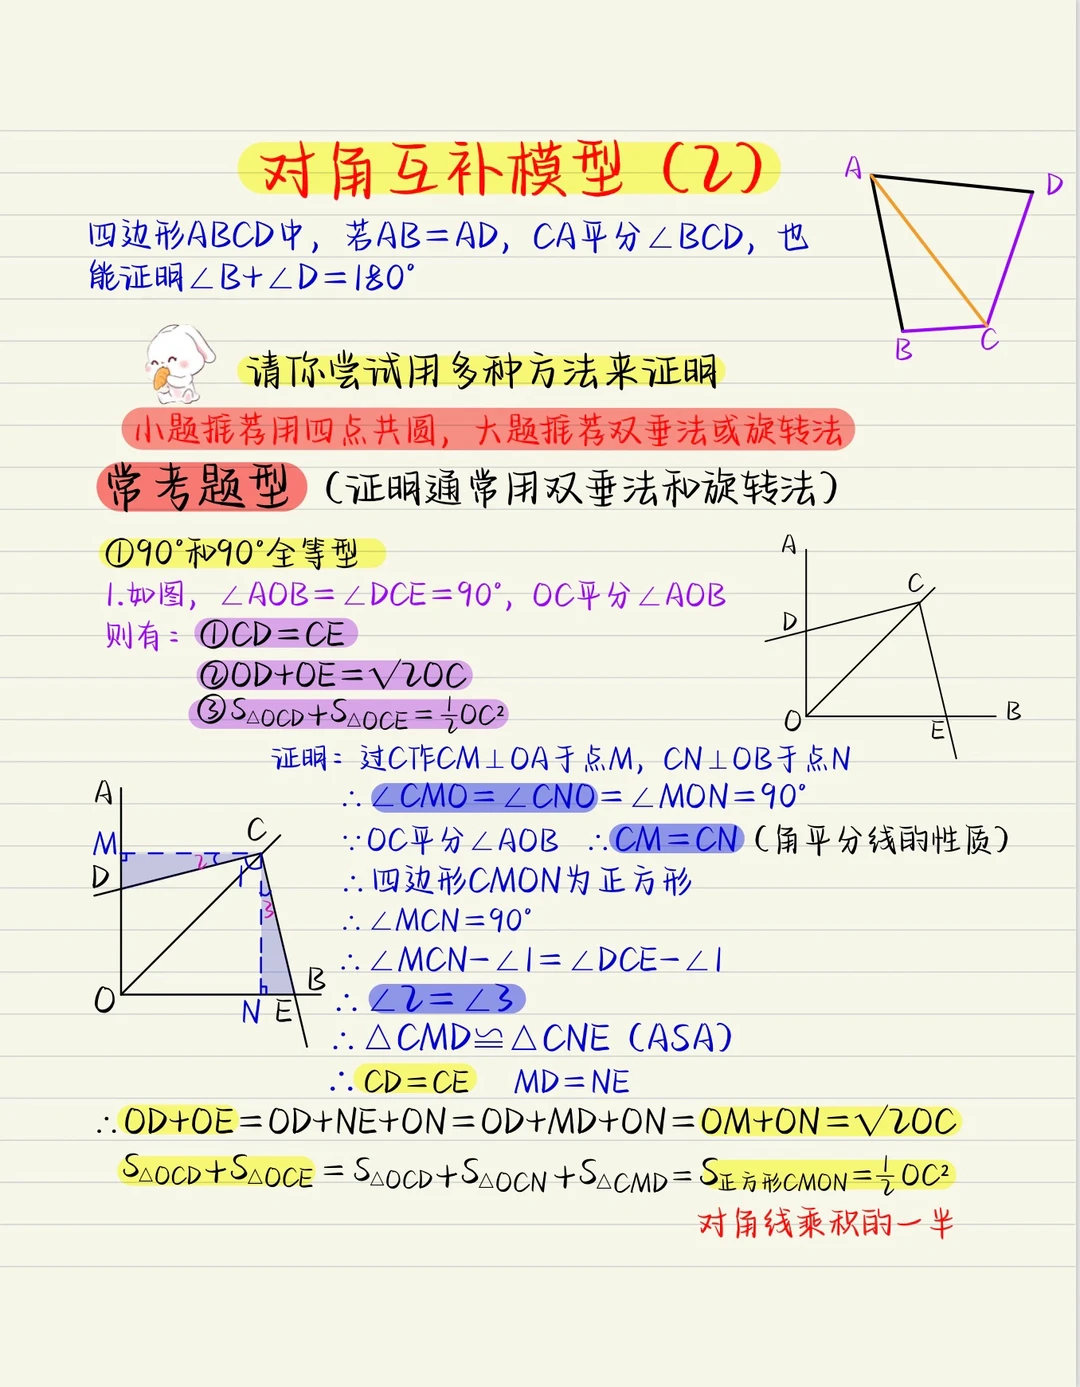 对角互补模型（2）
四边形ABCD中，若AB=AD，CA平分∠BCD，也
能证明∠B+∠D=180°
A
D
B
C
请你尝试用多种方法来证明
小题推荐用四点共圆，大题推荐双垂法或旋转法
常考题型（证明通常用双垂法和旋转法）
①90°和90°全等型
1.如图，∠AOB=∠DCE=90°，OC平分∠AOB
则有：①CD=CE
②OD+OE=√2OC
③S△OCD+S△OCE=½OC²
A
C
D
O
E
B
证明：过C作CM⊥OA于点M，CN⊥OB于点N
∴∠CMO=∠CNO=∠MON=90°
∵OC平分∠AOB ∴CM=CN（角平分线的性质）
∴四边形CMON为正方形
∴∠MCN=90°
∴∠MCN-∠1=∠DCE-∠1
∴∠2=∠3
∴△CMD≌△CNE（ASA）
∴CD=CE MD=NE
A
M
C
D
2
1
3
O
N
E
B
∴OD+OE=OD+NE+ON=OD+MD+ON=OM+ON=√2OC
S△OCD+S△OCE=S△OCD+S△OCN+S△CMD=S正方形CMON=½OC²
对角线乘积的一半